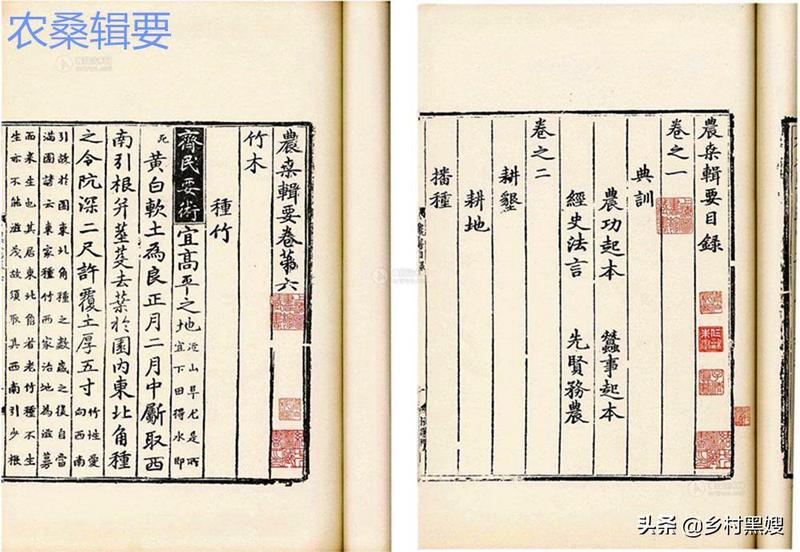 农桑辑要
農桒輯要目錄
卷之一
典訓
農功起本 蠶事起本
經史法言 先賢務農
卷之二
耕墾
耕地
播種
農桒輯要卷苐六
竹木
種竹
齊民要術宜高平之地近山阜尤是所宜下田得水即
死黃白軟土為良正月二月中斸取西
南引根并莖芟去葉於園內東北角種
之令阬深二尺許覆土厚五寸竹性愛向西南
引故於園東北角種之數歲之後自當
滿園諺云東家種竹西家治地為滋蔓
而來生也其居東北角者老竹種不生
生亦不能滋茂故須取其西南引少根
头条 @乡村黑嫂